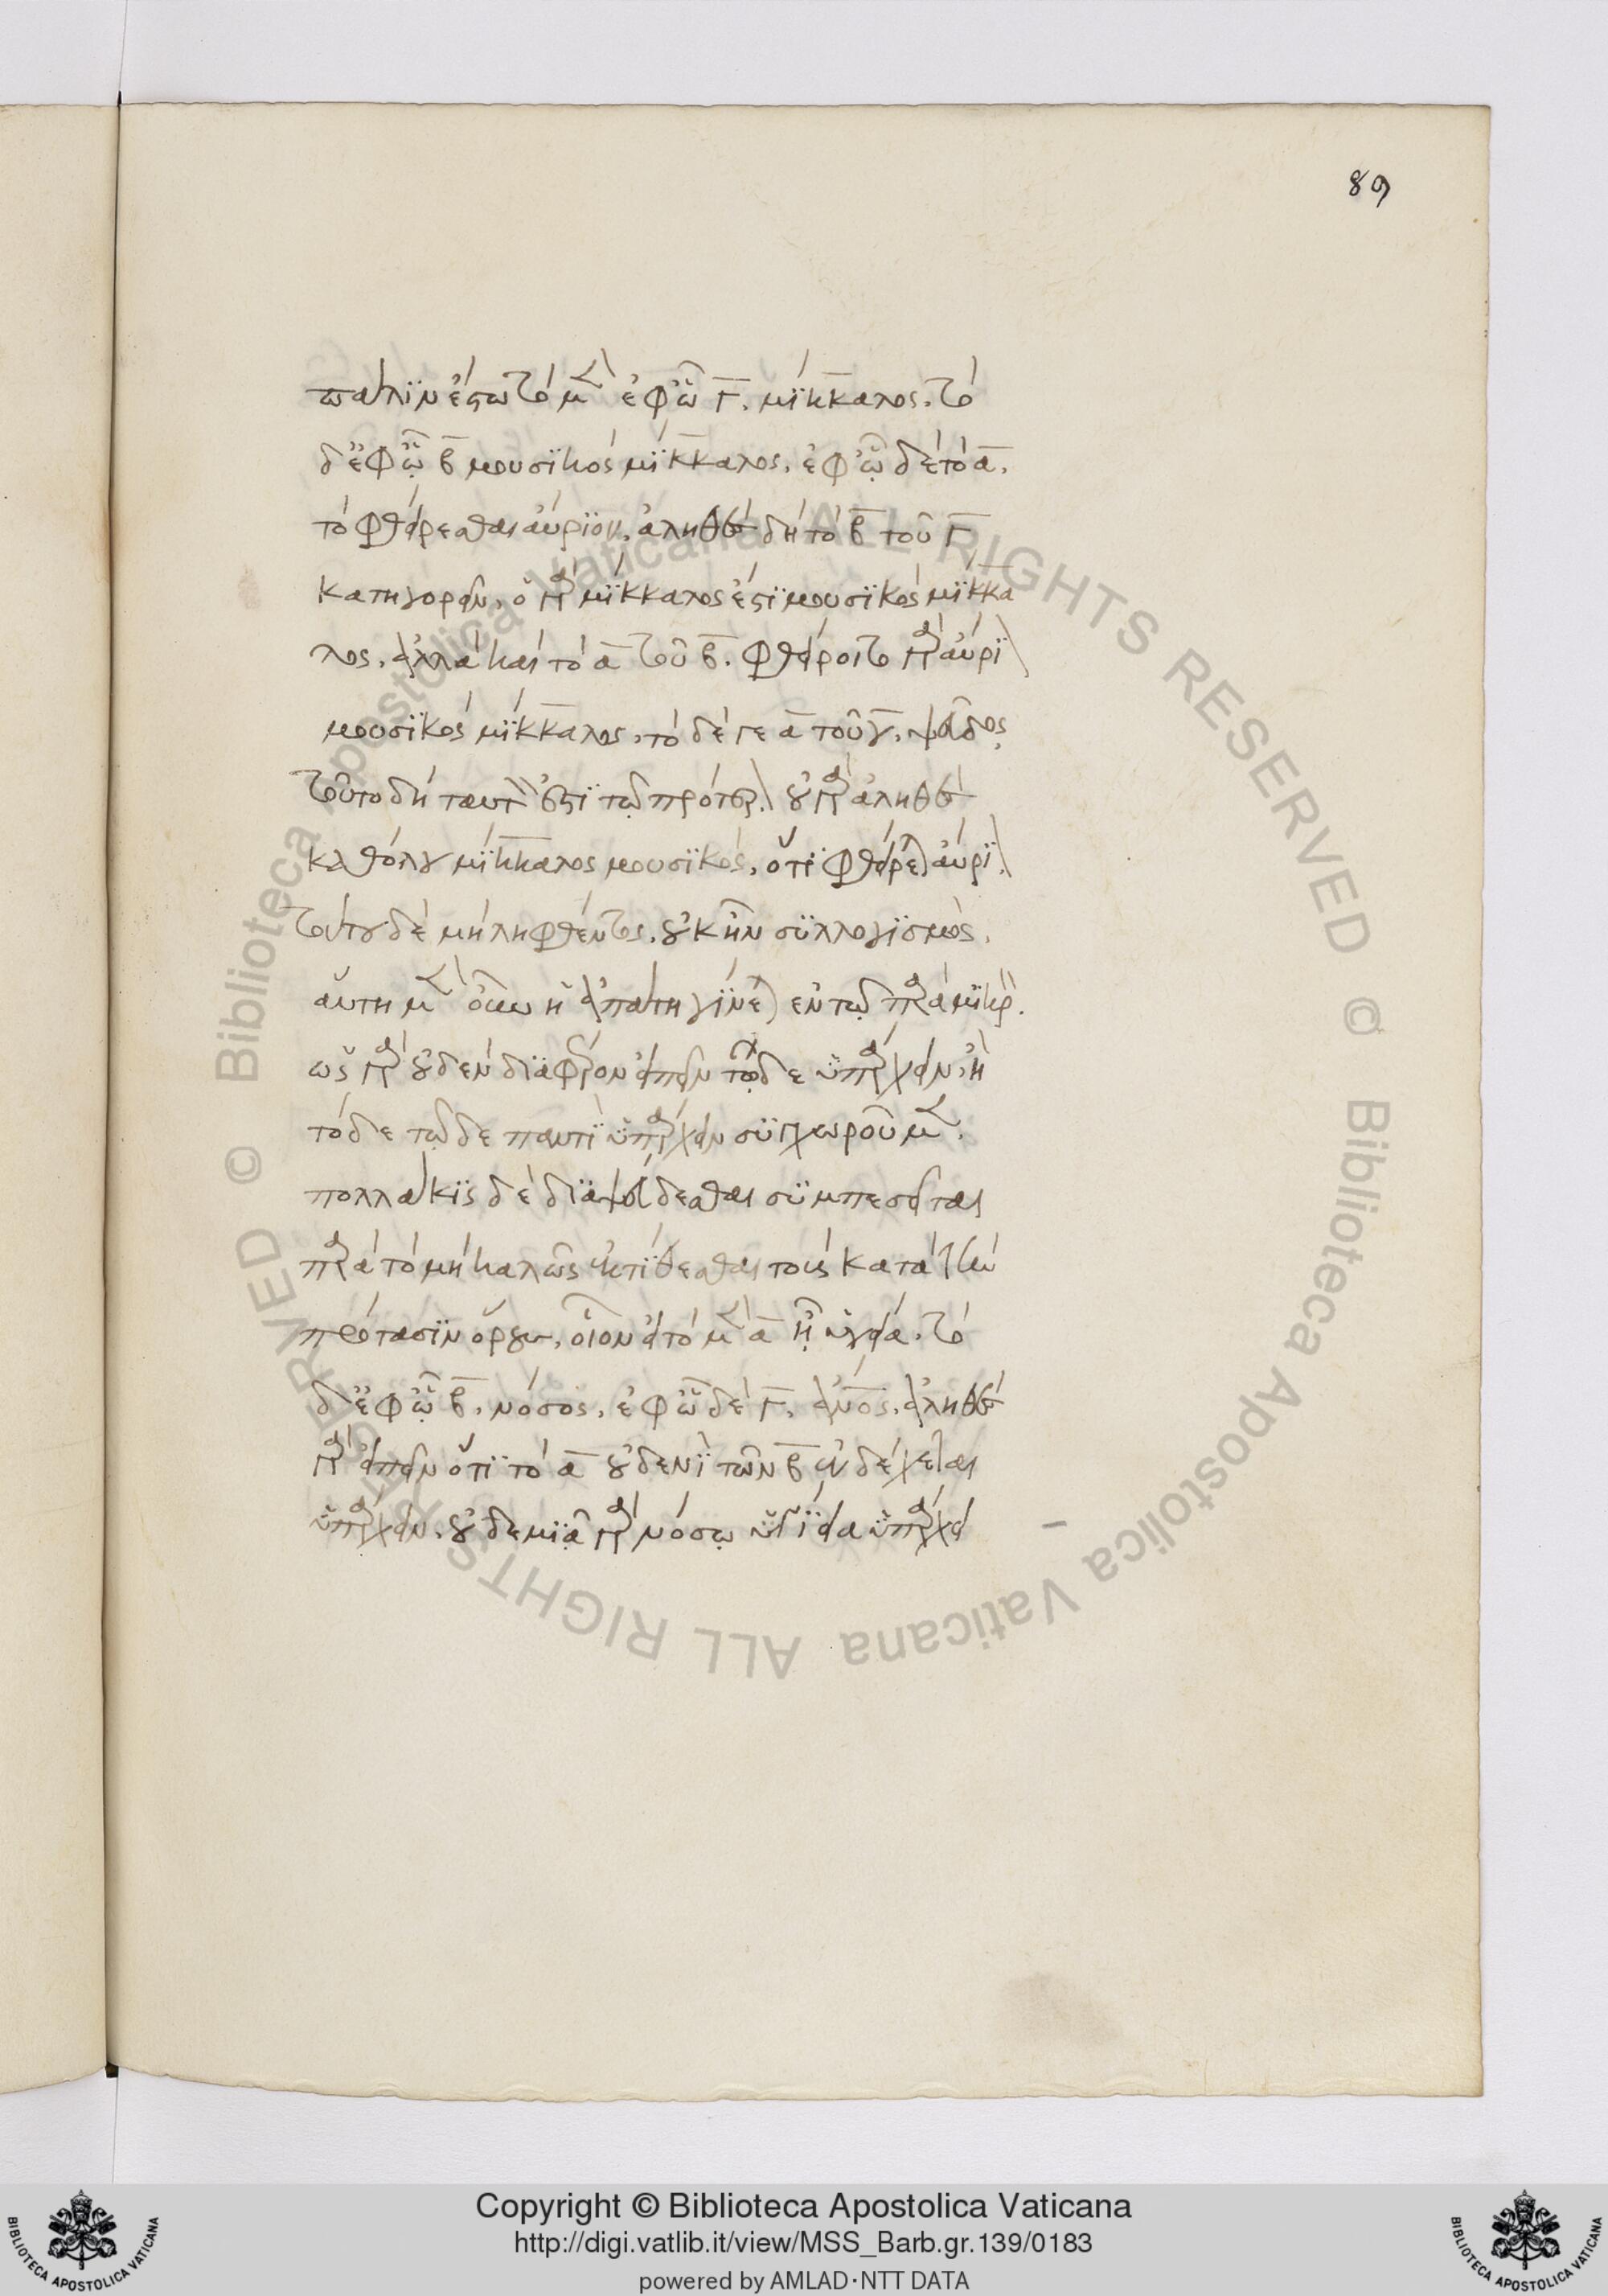 89
πάλιν ἔστω τὸ μὲν ἐφ' ᾧ Γ. μίκκαλος. τὸ
δ' ἐφ' ᾧ β μουσικὸς μίκκαλος. ἐφ' ᾧ δὲ τὸ α.
τὸ φθείρεσθαι αὔριον. ἀληθὲς δὴ τὸ β τοῦ Γ
κατηγορεῖν. ὁ γὰρ μίκκαλος ἐστὶ μουσικὸς μίκκα
λος. ἀλλὰ καὶ τὸ α τοῦ β. φθείροιτο γὰρ αὔρι
μουσικὸς μίκκαλος. τὸ δέ γε α τοῦ γ. ψεῦδος
τοῦτο δὴ ταυτὸν ἐστὶ τῷ πρότερ. οὐ γὰρ ἀληθὲς
καθόλου μίκκαλος μουσικὸς. ὅτι φθείρεται αὔρι.
τούτου δὲ μὴ ληφθέντος. οὐκ ἦν συλλογισμός.
αὕτη μὲν οὖν ἡ ἀπάτη γίνεται ἐν τῷ παρὰ μικρ.
ὡς γὰρ οὐδὲν διαφέρον εἰπεῖν τόδε τῷδε ὑπάρχειν, ἢ
τόδε τῷδε παντὶ ὑπάρχειν συγχωροῦμεν.
πολλάκις δὲ διαψεύδεσθαι συμπεσεῖται
παρὰ τὸ μὴ καλῶς ἐκτίθεσθαι τοὺς κατὰ τὴν
πρότασιν ὅρους. οἷον εἰ τὸ μὲν α εἴη ὑγεία. τὸ
δ' ἐφ' ᾧ β. νόσος. ἐφ' ᾧ δὲ Γ. ἄνος. ἀληθὲς
γὰρ εἰπεῖν ὅτι τὸ α οὐδενὶ τῶν β ἐνδέχεται
ὑπάρχειν. οὐδεμιᾷ γὰρ νόσῳ ὑγίεια ὑπάρχει
Copyright © Biblioteca Apostolica Vaticana
http://digi.vatlib.it/view/MSS_Barb.gr.139/0183
powered by AMLAD·NTT DATA
BIBLIOTECA APOSTOLICA VATICANA
BIBLIOTECA APOSTOLICA VATICANA
© Biblioteca Apostolica Vaticana ALL RIGHTS RESERVED © Biblioteca Apostolica Vaticana ALL RIGHTS RESERVED